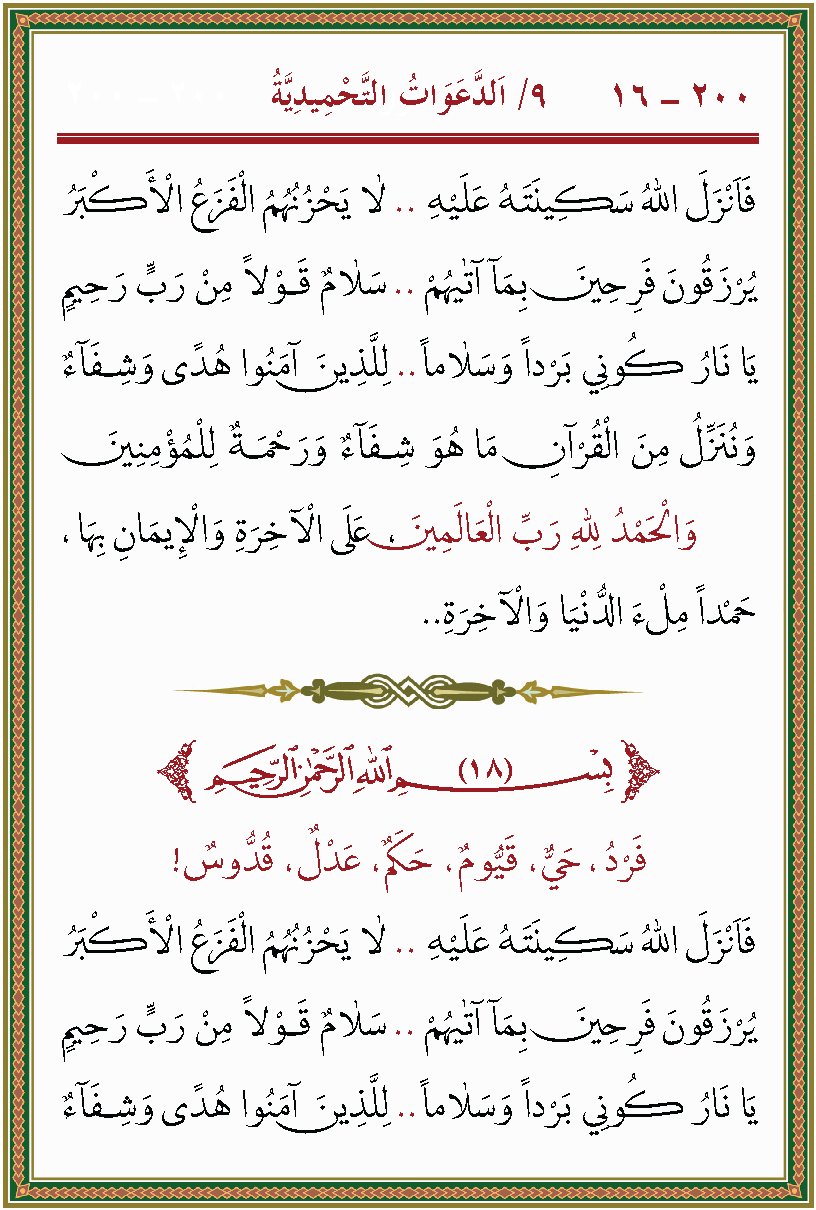 ٢٠٠ – ١٦ ٩/ اَلدَّعَوَاتُ التَّحْمِيدِيَّةُ
فَاَنْزَلَ اللهُ سَكِينَتَهُ عَلَيْهِ .. لَا يَحْزُنُهُمُ الْفَزَعُ الْأَكْبَرُ
يُرْزَقُونَ فَرِحِينَ بِمَآ آتٰيهُمْ .. سَلَامٌ قَوْلاً مِنْ رَبٍّ رَحِيمٍ
يَا نَارُ كُونِي بَرْداً وَسَلَاماً .. لِلَّذِينَ آمَنُوا هُدًى وَشِفَآءٌ
وَنُنَزِّلُ مِنَ الْقُرْآنِ مَا هُوَ شِفَآءٌ وَرَحْمَةٌ لِلْمُؤْمِنِينَ
وَالْحَمْدُ لِلهِ رَبِّ الْعَالَمِينَ ، عَلَى الْآخِرَةِ وَالْإِيمَانِ بِهَا ،
حَمْداً مِلْءَ الدُّنْيَا وَالْآخِرَةِ..
بِسْمِ اللهِ الرَّحْمٰنِ الرَّحِيمِ (١٨)
فَرْدُ ، حَيٌّ ، قَيُّومٌ ، حَكَمٌ ، عَدْلٌ ، قُدُّوسٌ !
فَاَنْزَلَ اللهُ سَكِينَتَهُ عَلَيْهِ .. لَا يَحْزُنُهُمُ الْفَزَعُ الْأَكْبَرُ
يُرْزَقُونَ فَرِحِينَ بِمَآ آتٰيهُمْ .. سَلَامٌ قَوْلاً مِنْ رَبٍّ رَحِيمٍ
يَا نَارُ كُونِي بَرْداً وَسَلَاماً .. لِلَّذِينَ آمَنُوا هُدًى وَشِفَآءٌ